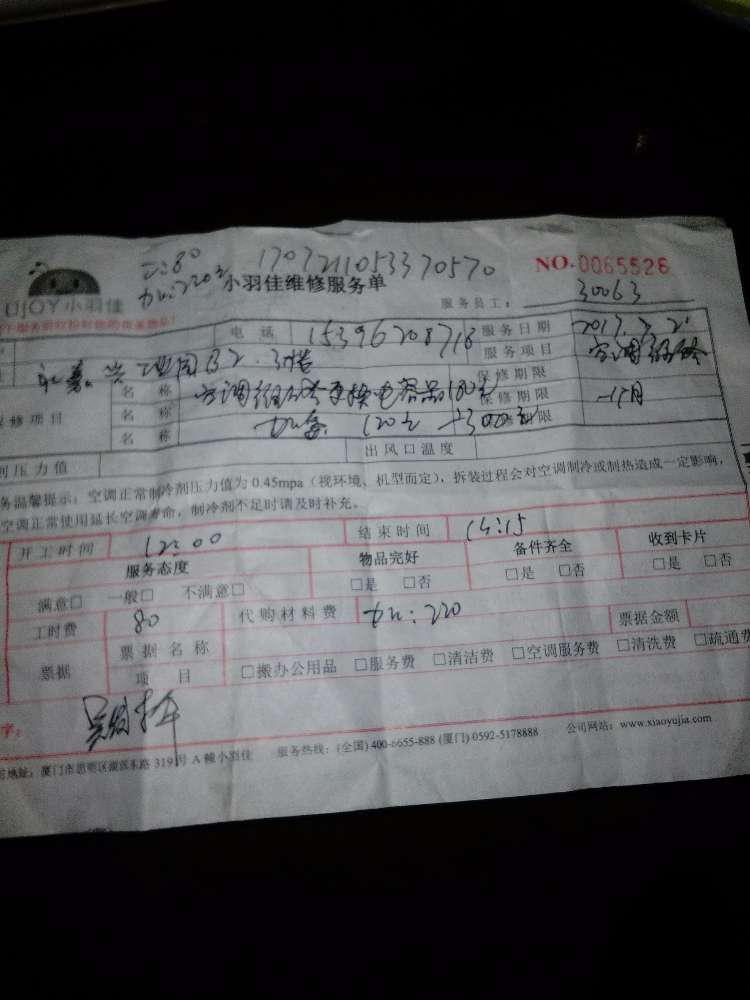 工:80 1707211053370570 NO.0065526
加:220元 小羽佳维修服务单
UJOY小羽佳 服务员工: 30063
电 话 15396208718 服务日期 2017.7.2
服务项目 空调维修
B2. 3楼 保修期限
名 称 空调 更换电容器100元 保修期限 一个月
保修项目 名 称 120元 期限
名 称
压力值 出风口温度
务温馨提示:空调正常制冷剂压力值为 0.45mpa(视环境、机型而定),拆装过程会对空调制冷或制热造成一定影响,
空调正常使用延长空调寿命,制冷剂不足时请及时补充。
开工时间 12:00 结束时间 14:15
服务态度 物品完好 备件齐全 收到卡片
满意□ 一般□ 不满意□ □是 □否 □是 □否 □是 □否
工时费 80 代购材料费 加:220 票据金额
票据 票据名称
项 目 □搬办公用品 □服务费 □清洁费 □空调服务费 □清洗费 □疏通费
字:
地址:厦门市思明区 东路 319 号 A 幢小羽佳 服务热线:(全国) 400-6655-888 (厦门) 0592-5178888 公司网站:www.xiaoyujia.com